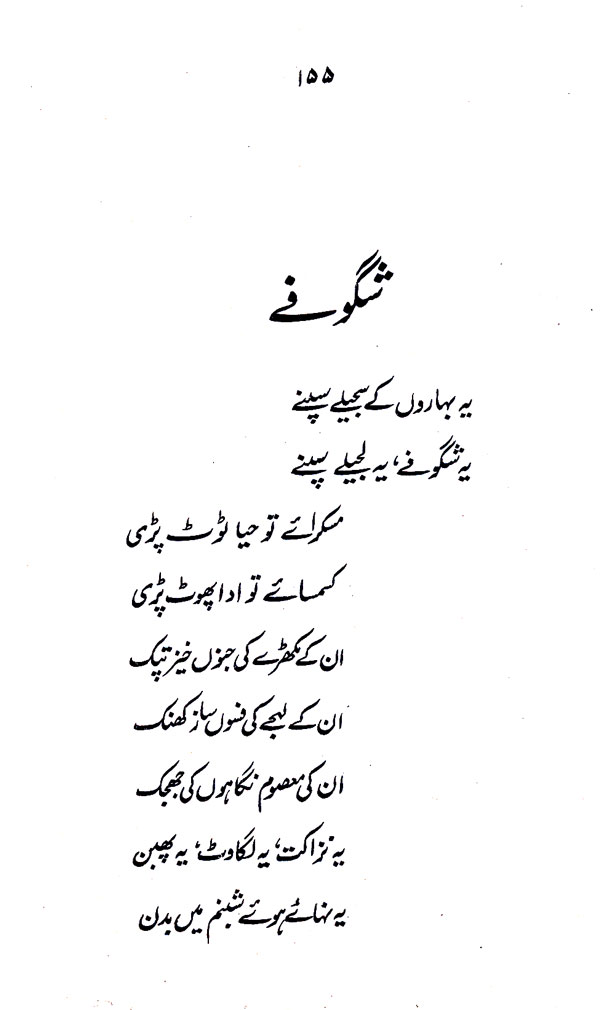 ۱۵۵
شگوفے
یہ بہاروں کے سجیلے سپنے
یہ شگوفے، یہ لجیلے سپنے
مسکرائے تو حیا ٹوٹ پڑی
کسمسائے تو ادا پھوٹ پڑی
ان کے مکھڑے کی جنوں خیز تپک
ان کے لہجے کی فسوں ساز کھنک
ان کی معصوم نگاہوں کی جھجک
یہ نزاکت، یہ لگاوٹ، یہ پھبن
یہ نہائے ہوئے شبنم میں بدن